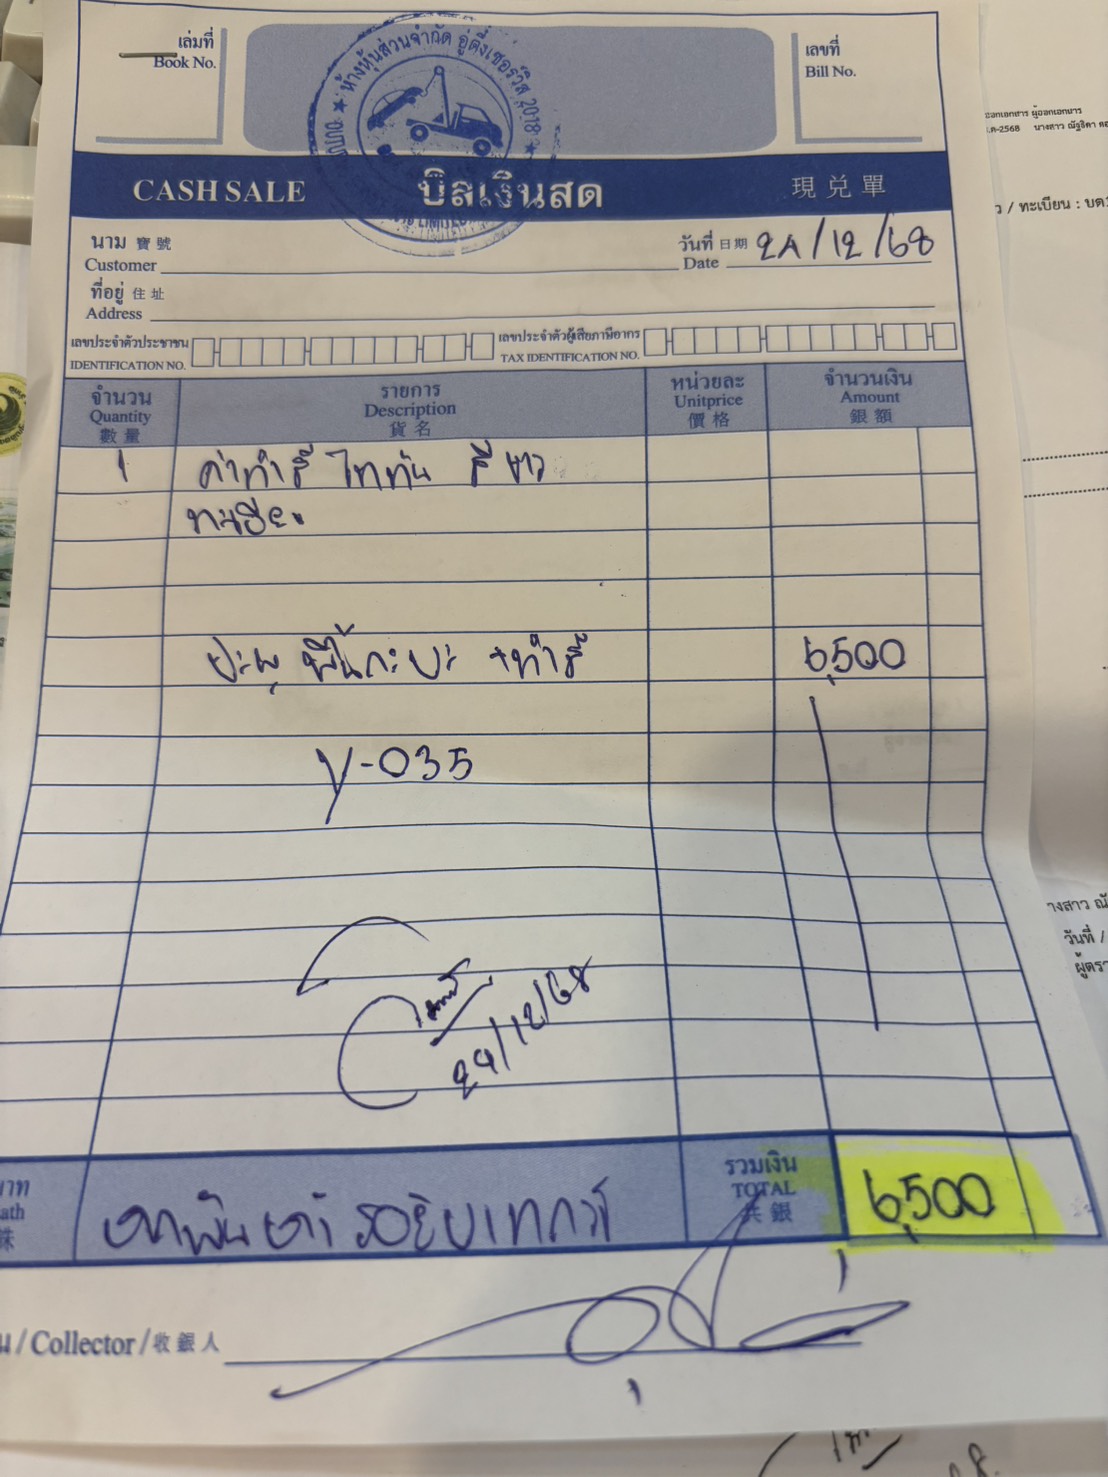 เล่มที่
Book No.
ห้างหุ้นส่วนจำกัด อู่ตึ๋งเซอร์วิส 2018
เลขที่
Bill No.
CASH SALE บิลเงินสด 現兑單
นาม 寶號
Customer
วันที่ 日期 24/12/68
Date
ที่อยู่ 住址
Address
เลขประจำตัวประชาชน
IDENTIFICATION NO.
เลขประจำตัวผู้เสียภาษีอากร
TAX IDENTIFICATION NO.
จำนวน
Quantity
數量
รายการ
Description
貨名
หน่วยละ
Unitprice
價格
จำนวนเงิน
Amount
銀額
1 ค่าทำสี ไททัน สีขาว
ปะผุ พื้นกะบะ +ทำสี 6,500
V-035
24/12/68
บาท
ath
銖
หกพันห้าร้อยบาทถ้วน
รวมเงิน
TOTAL
共銀
6,500
น / Collector / 收銀人
ผู้ออกเอกสาร
-2568 นางสาว ณัฐธิดา
ว / ทะเบียน :
างสาว
วันที่ /